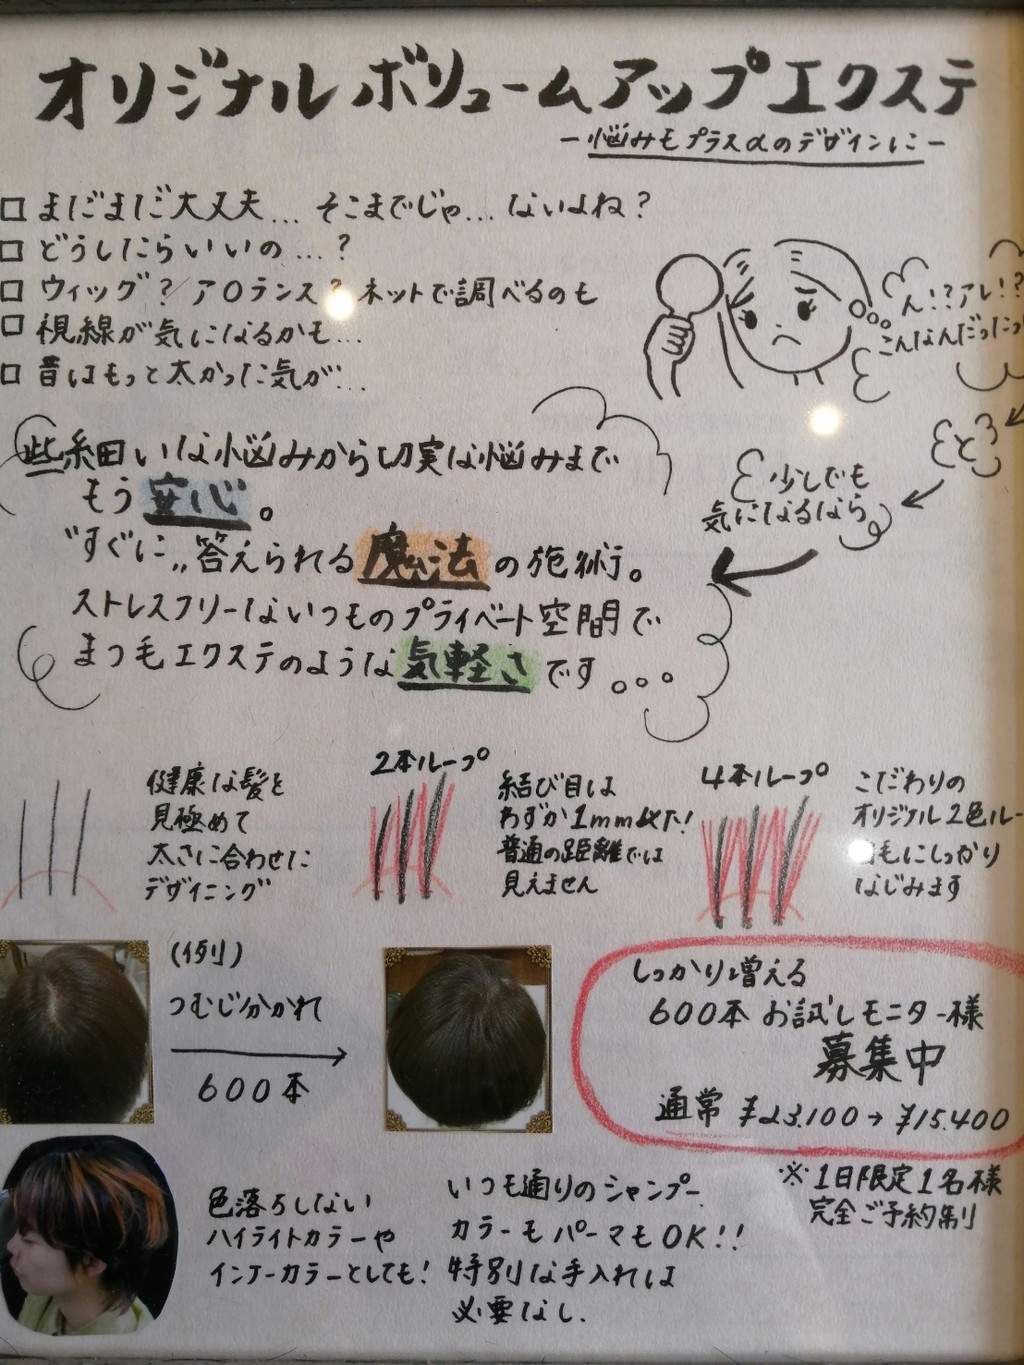 オリジナルボリュームアップエクステ
ー悩みもプラスαのデザインにー
□ まだまだ大丈夫... そこまでじゃ... ないよね?
□ どうしたらいいの...?
□ ウィッグ?/アロランス? ネットで調べるのも
□ 視線が気になるかも...
□ 昔はもっと太かった気が...
ん!?アレ!?
こんなんだった
と
少しでも
気になるなら
些細いな悩みから切実な悩みまで
もう安心。
"すぐに"答えられる魔法の施術。
ストレスフリーないつものプライベート空間で
まつ毛エクステのような気軽さです。。。
健康な髪を
見極めて
太さに合わせた
デザイニング
2本ループ
結び目は
わずか1mm以下!
普通の距離では
見えません
4本ループ
こだわりの
オリジナル2色ルー
毛にしっかり
なじみます
(例)
つむじ分かれ
600本
しっかり増える
600本 お試しモニター様
募集中
通常 ¥23.100→¥15.400
※1日限定1名様
完全ご予約制
色落ちしない
ハイライトカラーや
インナーカラーとしても!
いつも通りのシャンプー
カラーもパーマもOK!!
特別な手入れは
必要なし.